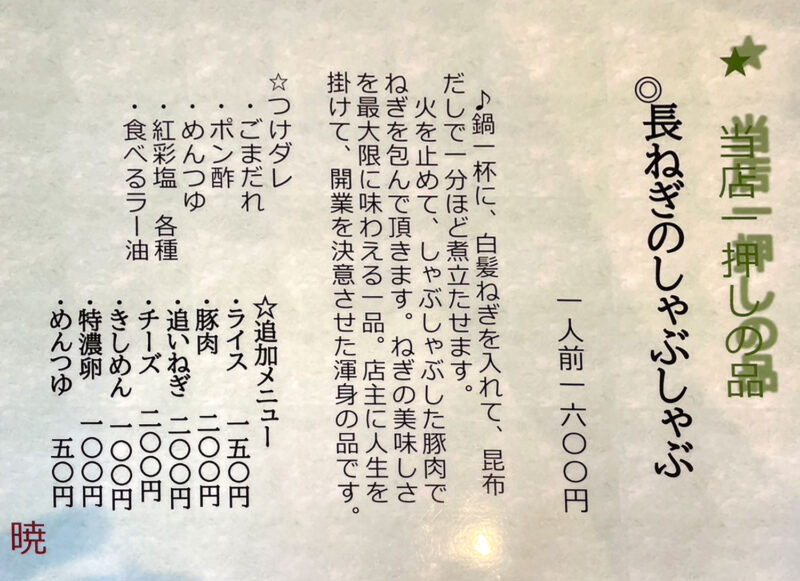 ★当店一押しの品
◎長ねぎのしゃぶしゃぶ
一人前一六〇〇円
♪鍋一杯に、白髪ねぎを入れて、昆布
だしで一分ほど煮立たせます。
火を止めて、しゃぶしゃぶした豚肉で
ねぎを包んで頂きます。ねぎの美味しさ
を最大限に味わえる一品。店主に人生を
掛けて、開業を決意させた渾身の品です。
☆つけダレ
・ごまだれ
・ポン酢
・めんつゆ
・紅彩塩 各種
・食べるラー油
☆追加メニュー
・ライス 一五〇円
・豚肉 二〇〇円
・追いねぎ 二〇〇円
・チーズ 二〇〇円
・きしめん 一〇〇円
・特濃卵 一〇〇円
・めんつゆ 五〇円
暁